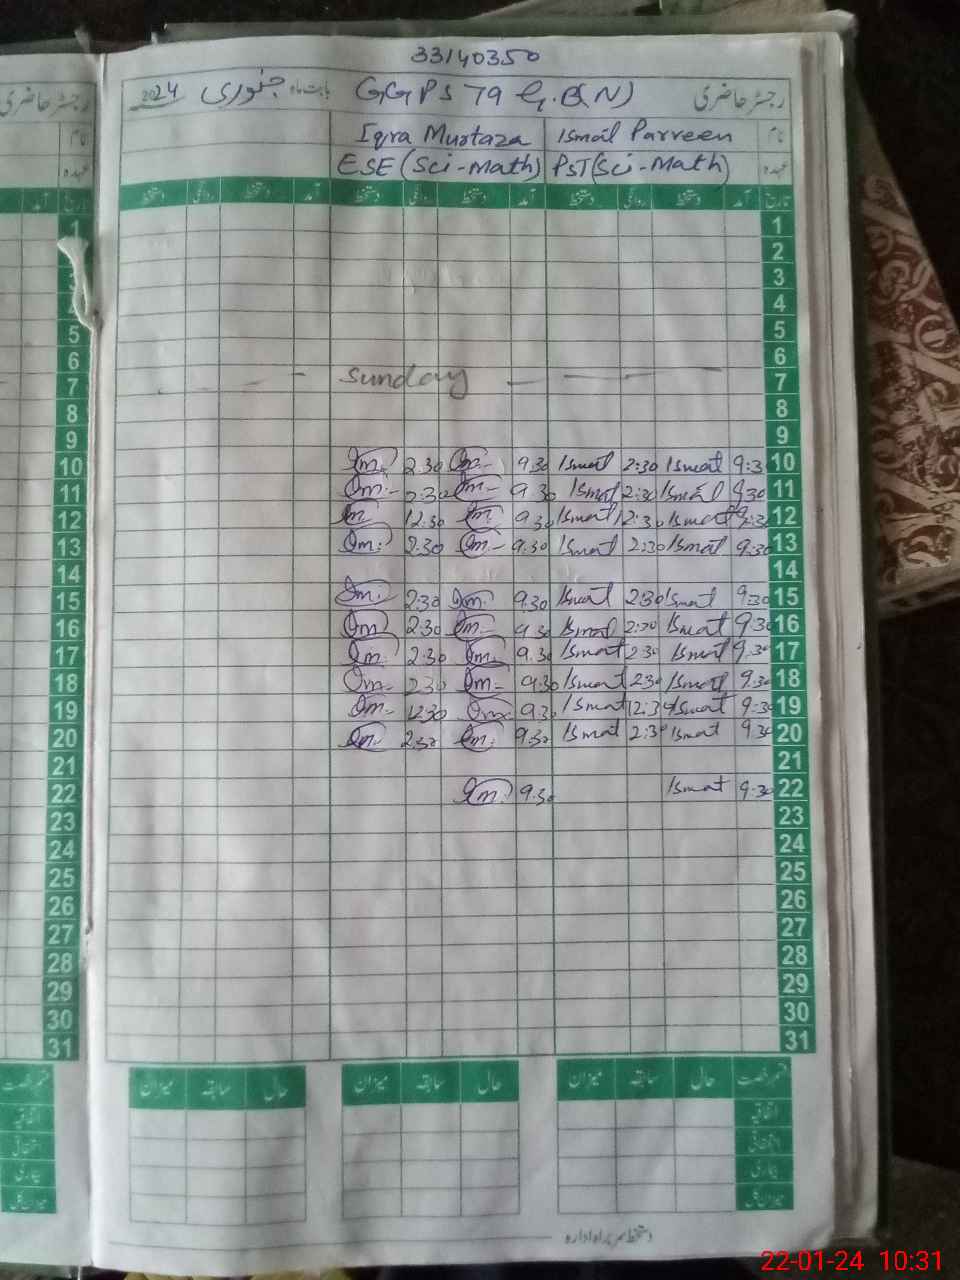 33140350
رجسٹر حاضری GGPS 79 G.B(N) بابت ماہ جنوری 2024
نام Ismat Parveen Iqra Murtaza
عہدہ PST(Sci-Math) ESE (Sci-Math)
تاریخ آمد دستخط روانگی دستخط آمد دستخط روانگی دستخط آمد دستخط روانگی دستخط
1
2
3
4
5
6
7 Sunday
8
9
10 9:3 Ismat 2:30 Ismat 9.30 Im. 2.30 Im.
11 9:30 Ismat 2:30 Ismat 9.30 Im. 2:30 Im.
12 9:30 Ismat 12:30 Ismat 9.30 Im. 12:30 Im.
13 9:30 Ismat 2:30 Ismat 9.30 Im. 2:30 Im.
14
15 9:30 Ismat 2:30 Ismat 9.30 Im. 2:30 Im.
16 9:30 Ismat 2:30 Ismat 9.30 Im. 2:30 Im.
17 9:30 Ismat 2:30 Ismat 9.30 Im. 2:30 Im.
18 9:30 Ismat 2:30 Ismat 9.30 Im. 2:30 Im.
19 9:30 Ismat 12:30 Ismat 9.30 Im. 12:30 Im.
20 9:30 Ismat 2:30 Ismat 9.30 Im. 2:30 Im.
21
22 9:30 Ismat 9.30 Im.
23
24
25
26
27
28
29
30
31
قسم رخصت حال سابقہ میزان حال سابقہ میزان حال سابقہ میزان
اتفاقیہ
استحقاقی
بیماری
میزان کل
دستخط سربراہ ادارہ
22-01-24 10:31